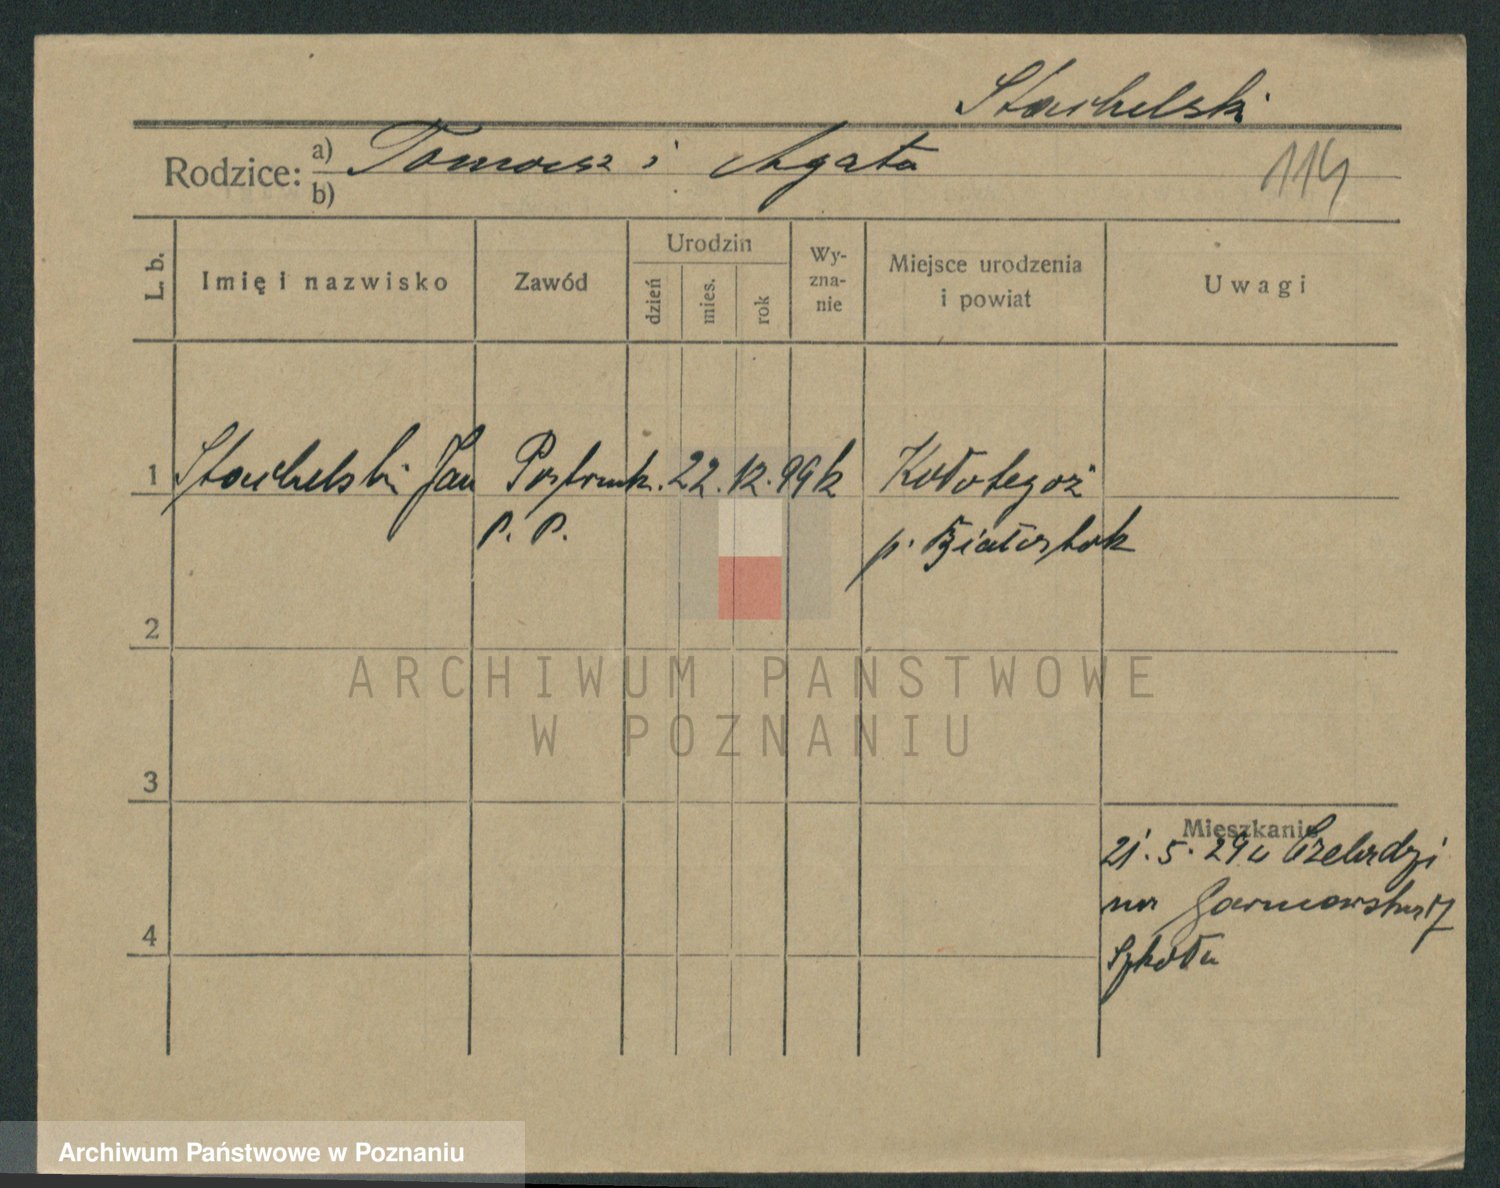 Stachelski
Rodzice: a) Tomasz i Agata
b)
114
L. b.
Imię i nazwisko
Zawód
Urodzin
dzień
mies.
rok
Wy-
zna-
nie
Miejsce urodzenia
i powiat
Uwagi
1 Stachelski Jan Posterunk. 22. 12. 99 k
P. P.
p. Białystok
2
3
4
Mieszkanie
21. 5. 29 Czeladzi
na
Szkoła
ARCHIWUM PAŃSTWOWE
W POZNANIU
Archiwum Państwowe w Poznaniu